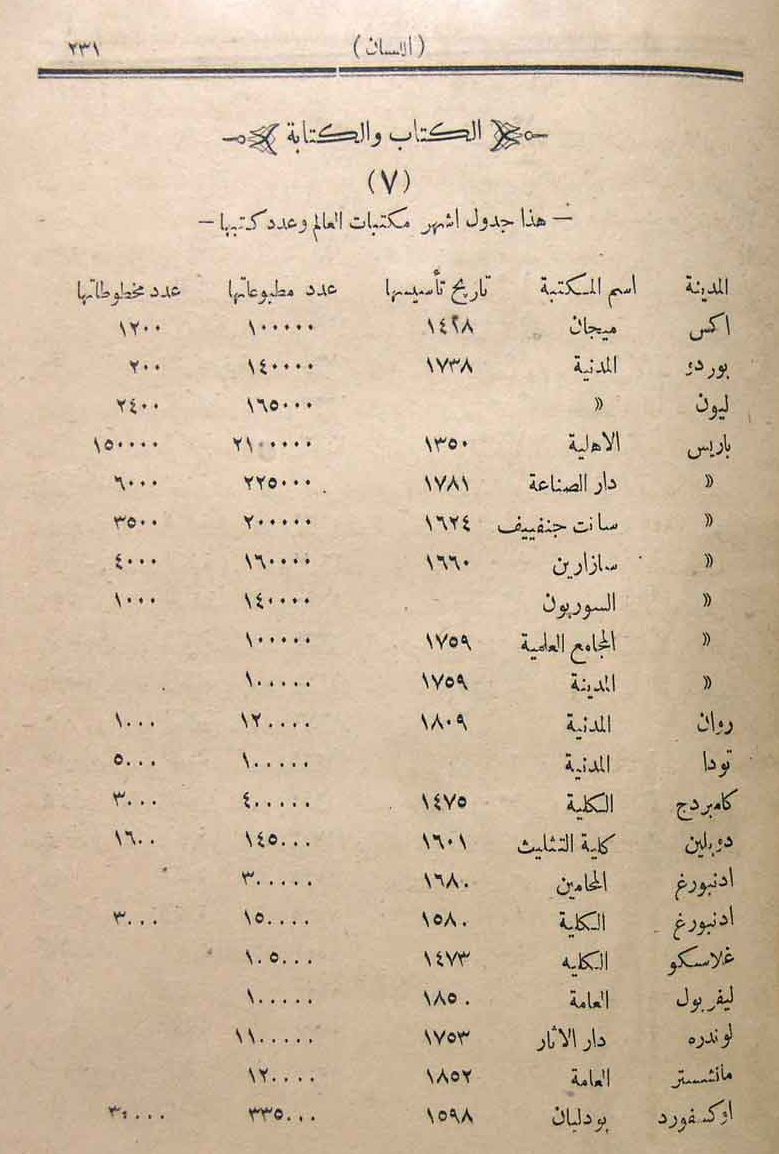 ٢٣١ (اللسان)
الكتاب والكتابة
(٧)
— هذا جدول اشهر مكتبات العالم وعدد كتبها —
المدينة اسم المكتبة تاريخ تأسيسها عدد مطبوعاتها عدد مخطوطاتها
اكس ميجان ١٤٢٨ ١٠٠٠٠٠ ١٢٠٠
بوردو المدنية ١٧٣٨ ١٤٠٠٠٠ ٢٠٠
ليون » ١٦٥٠٠٠ ٢٤٠٠
باريس الاهلية ١٣٥٠ ٢١٠٠٠٠٠ ١٥٠٠٠٠
» دار الصناعة ١٧٨١ ٢٢٥٠٠٠ ٦٠٠٠
» سانت جنفييف ١٦٢٤ ٢٠٠٠٠٠ ٣٥٠٠
» سازارين ١٦٦٠ ١٦٠٠٠٠ ٤٠٠٠
» السوربون ١٤٠٠٠٠ ١٠٠٠
» المجامع العلمية ١٧٥٩ ١٠٠٠٠٠
» المدينة ١٧٥٩ ١٠٠٠٠٠
روان المدنية ١٨٠٩ ١٢٠٠٠٠ ١٠٠٠
تودا المدنية ١٠٠٠٠٠ ٥٠٠٠
كامبردج الكلية ١٤٧٥ ٤٠٠٠٠٠ ٣٠٠٠
دوبلين كلية التثليث ١٦٠١ ١٤٥٠٠٠ ١٦٠٠
ادنبورغ المحامين ١٦٨٠ ٣٠٠٠٠٠
ادنبورغ الكلية ١٥٨٠ ١٥٠٠٠٠ ٣٠٠٠
غلاسكو الكليه ١٤٧٣ ١٠٥٠٠٠
ليفربول العامة ١٨٥٠ ١٠٠٠٠٠
لوندره دار الاثار ١٧٥٣ ١١٠٠٠٠٠
مانشستر العامة ١٨٥٢ ١٢٠٠٠٠
اوكسفورد بودليان ١٥٩٨ ٣٣٥٠٠٠ ٣٤٠٠٠